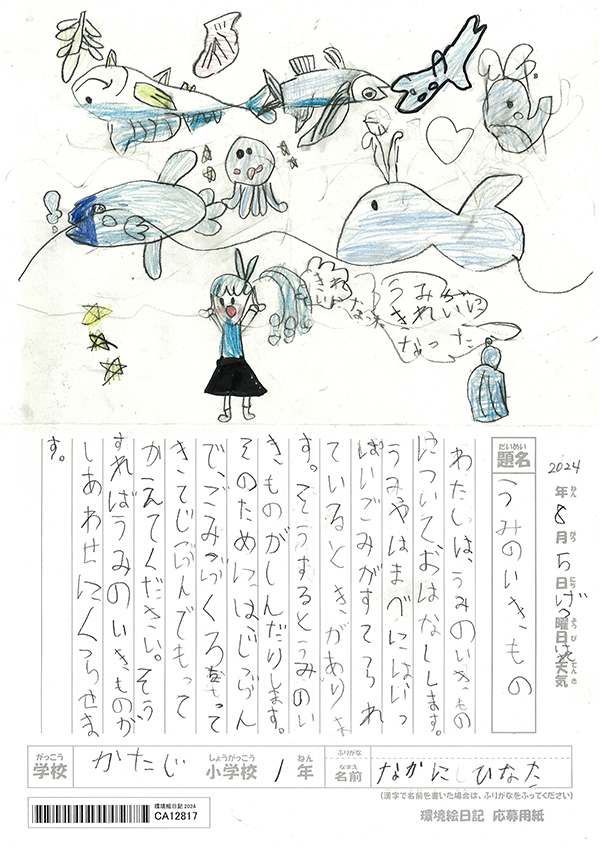 きれ
いに
なった
うみ
きれいに
なった
2024年8月5日げつ曜日 天気
ねん
がつ
にち
ようび
てんき
だいめい
題名
うみのいきもの
わたしは、うみのいきもの
についておはなしします。
うみやはまべにはいっ
ぱいごみがすてられ
ているときがありま
す。そうするとうみのい
きものがしんだりします。
そのためには、じぶん
で、ごみぶくろをもって
きてじぶんでもって
かえてください。そう
すればうみのいきものが
しあわせにくらせま
す。
がっこう
しょうがっこう
ねん
学校 かたじ 小学校 1年
ふりがな
なまえ
名前 なかにしひなた
(漢字で名前を書いた場合は、ふりがなをふってください)
環境絵日記2024
CA12817
環境絵日記 応募用紙